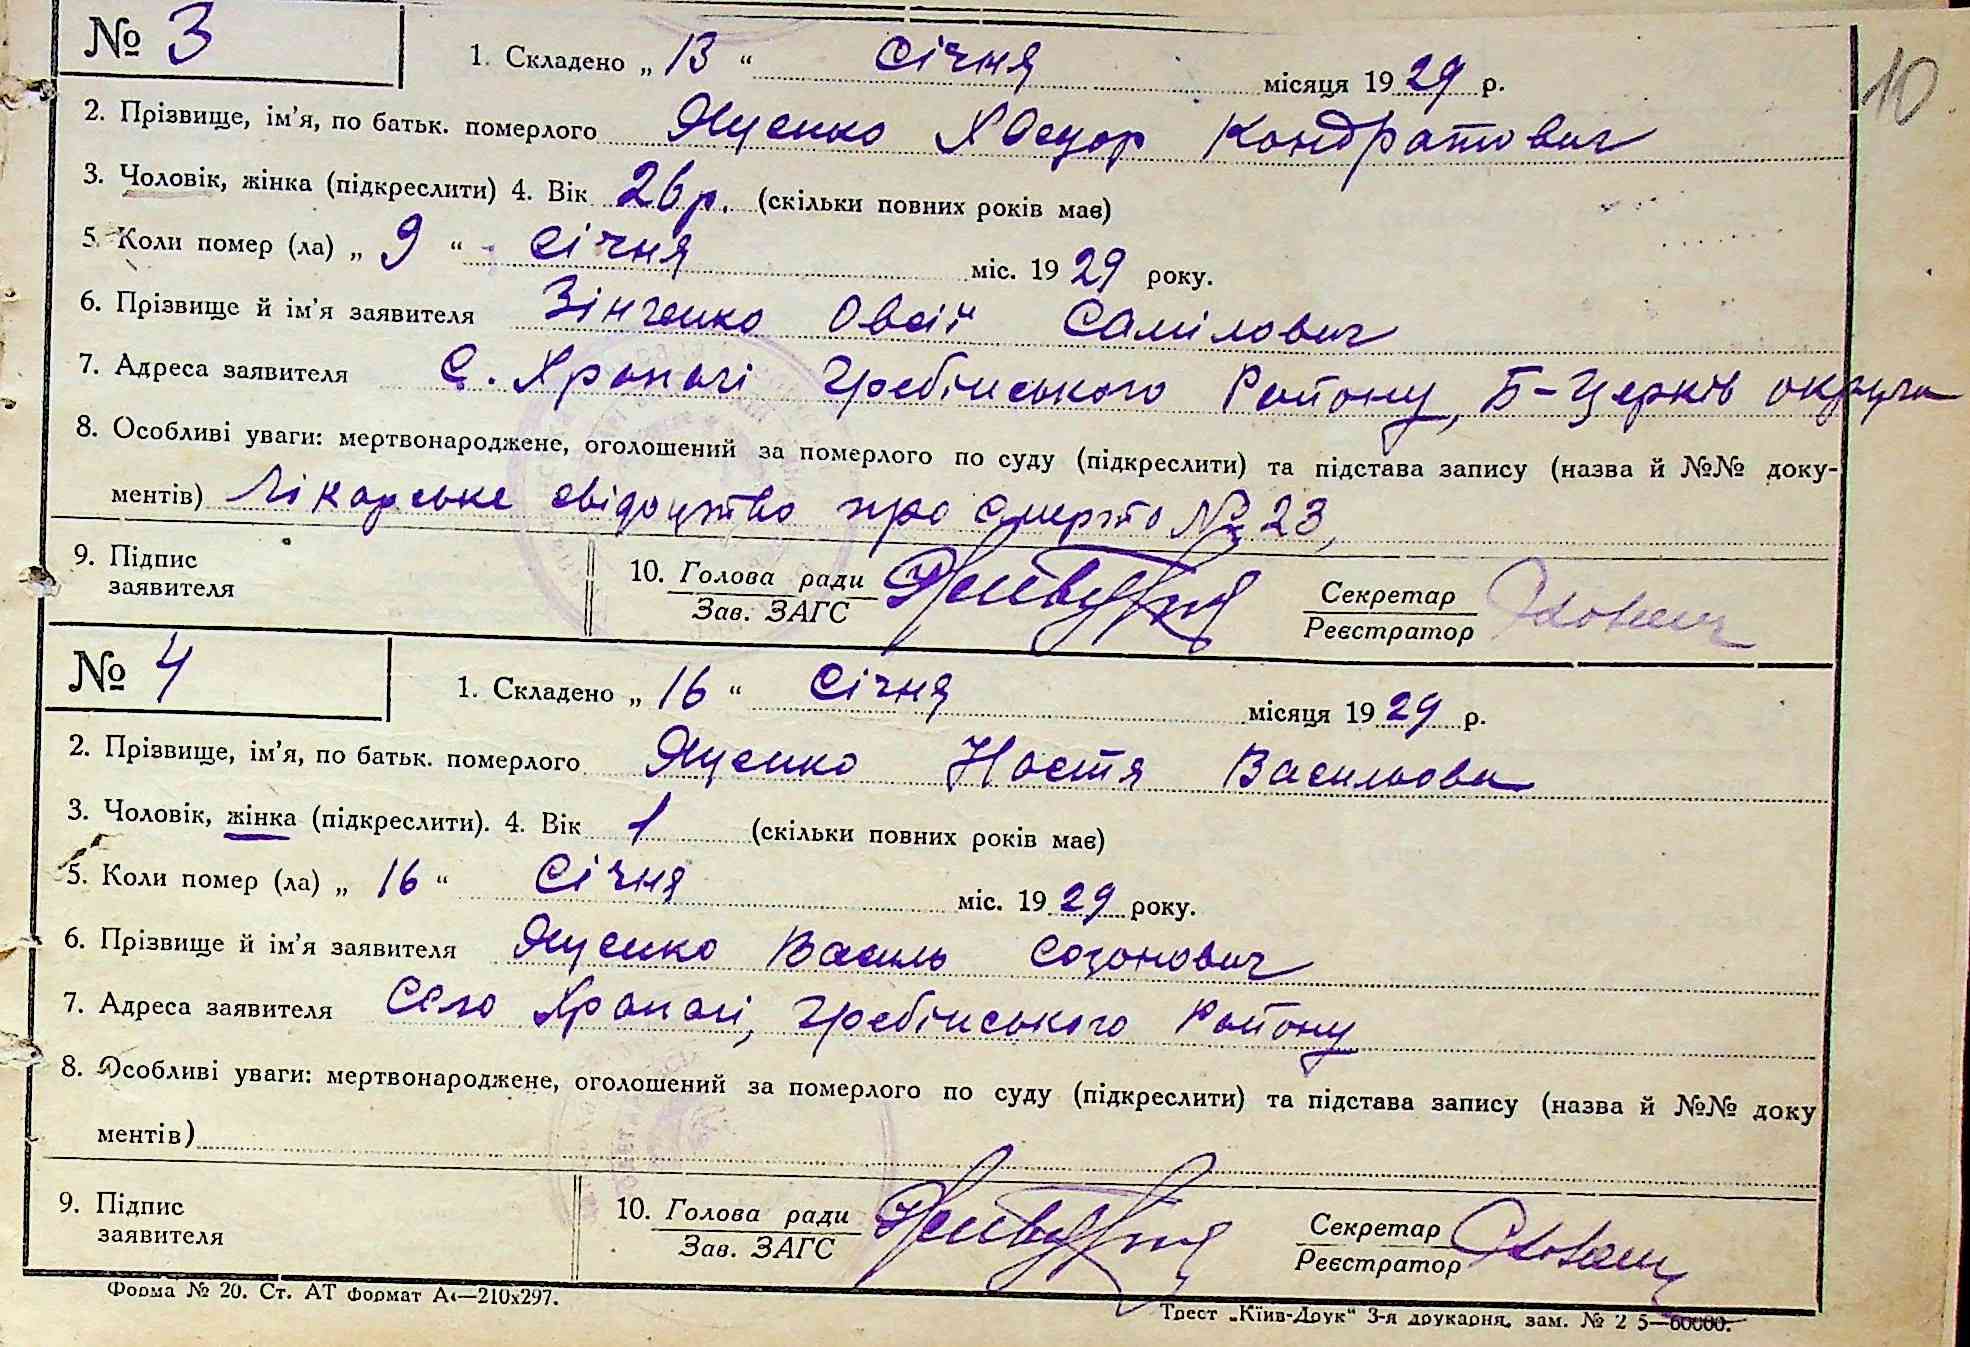 10
№ 3
1. Складено „ 13 “ Січня місяця 1929 р.
2. Прізвище, ім'я, по батьк. померлого Яценко Хведор Кондратович
3. Чоловік, жінка (підкреслити) 4. Вік 26 р. (скільки повних років має)
5. Коли помер (ла) „ 9 “ Січня міс. 1929 року.
6. Прізвище й ім'я заявителя Зінченко Овсій Самілович
7. Адреса заявителя С. Храпачі Гребінського Району, Б-Церків округи
8. Особливі уваги: мертвонароджене, оголошений за померлого по суду (підкреслити) та підстава запису (назва й №№ доку-
ментів) Лікарське свідоцтво про смерть № 23,
9. Підпис
заявителя
10. Голова ради
Зав. ЗАГС
Секретар
Реєстратор
№ 4
1. Складено „ 16 “ Січня місяця 1929 р.
2. Прізвище, ім'я, по батьк. померлого Яценко Настя Васильовна
3. Чоловік, жінка (підкреслити). 4. Вік 1 (скільки повних років має)
5. Коли помер (ла) „ 16 “ Січня міс. 1929 року.
6. Прізвище й ім'я заявителя Яценко Василь Созонович
7. Адреса заявителя Село Храпачі, Гребінського Району
8. Особливі уваги: мертвонароджене, оголошений за померлого по суду (підкреслити) та підстава запису (назва й №№ доку
ментів)
9. Підпис
заявителя
10. Голова ради
Зав. ЗАГС
Секретар
Реєстратор
Форма № 20. Ст. АТ формат А4—210х297.
Трест „Київ-Друк“ 3-я друкарня, зам. № 2 5—60000.